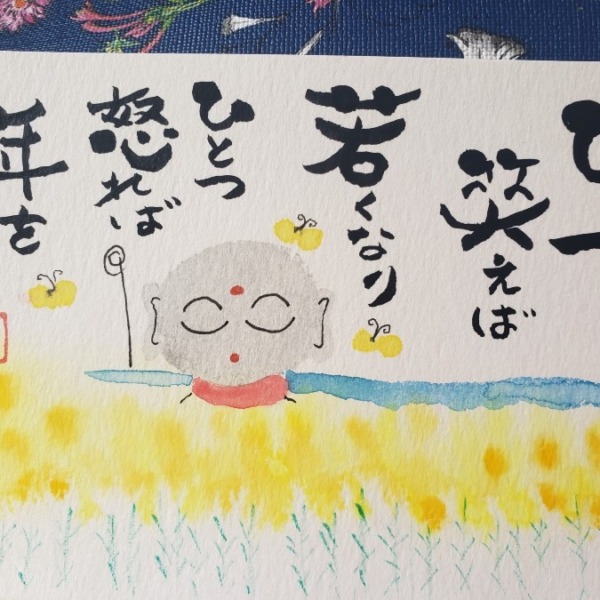 笑えば
若くなり
ひとつ
怒れば
年を